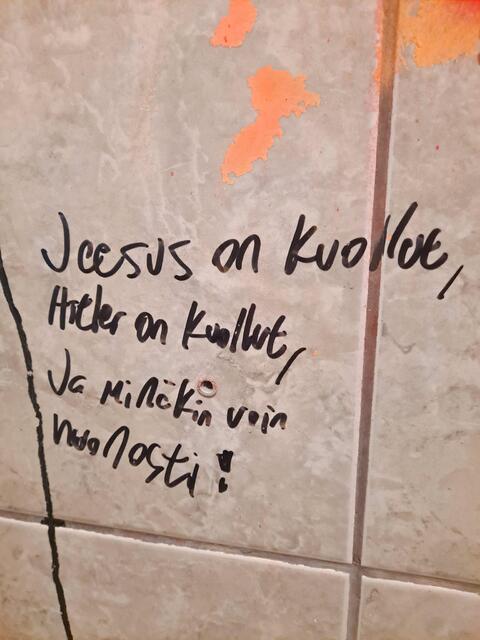 Jeesus on kuollut,
Hitler on kuollut,
Ja minäkin voin
huonosti!